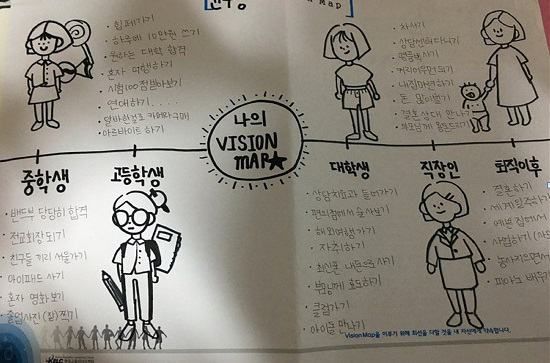 VISION MAP
힙페가기
하루에 10만원 쓰기
원하는 대학 합격
혼자 여행하기
시험100점받아보기
연애하기....
알바한걸로 카메라구매
아르바이트하기
차사기
상담센터다니기
커리어우먼되기
내집마련하기
돈 많이벌기
결혼상대 만나기
부모님께 용돈드리기
나의
VISION
MAP
중학생
고등학생
대학생
직장인
퇴직이후
밴드부 당당히 합격
전교회장되기
친구들끼리 서울가기
아이패드 사기
혼자 영화보기
졸업사진(잘)찍기
상담치료과 들어가기
편의점에서 술사보기
해외여행가기
자취하기
최신폰 내돈으로 사기
부모님께 효도하기
클럽가기
아이돌만나기
결혼하기
세계일주하기
예쁜 집에서
사업하기
농사지으면서
피아노 배우기
Vision Map을 이루기 위해 최선을 다할 것을 내 자신에게 약속합니다.